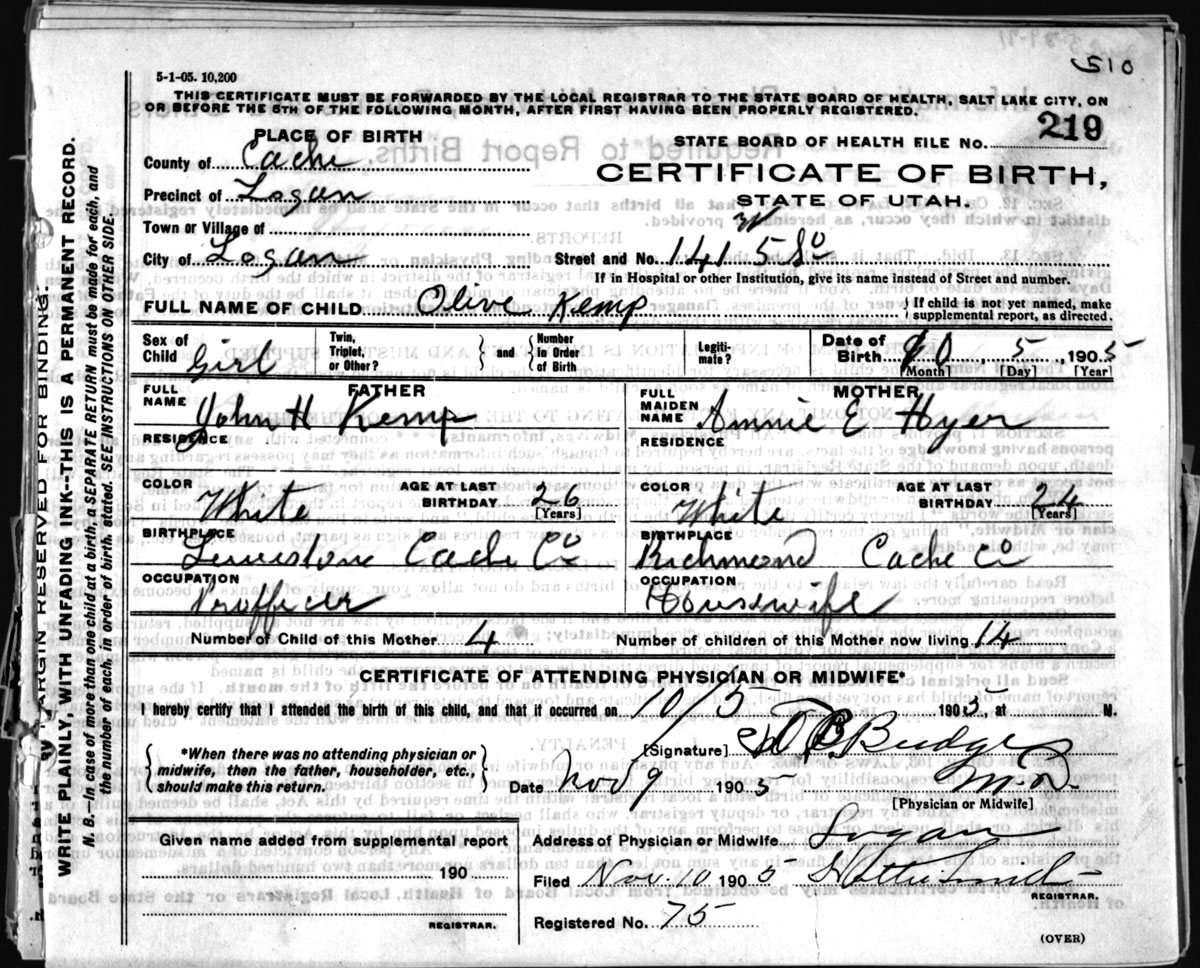 510
5-1-05. 10,200
THIS CERTIFICATE MUST BE FORWARDED BY THE LOCAL REGISTRAR TO THE STATE BOARD OF HEALTH, SALT LAKE CITY, ON
OR BEFORE THE 5TH OF THE FOLLOWING MONTH, AFTER FIRST HAVING BEEN PROPERLY REGISTERED.
PLACE OF BIRTH
STATE BOARD OF HEALTH FILE NO. 219
County of Cache
CERTIFICATE OF BIRTH,
Precinct of Logan
STATE OF UTAH.
Town or Village of
City of Logan
Street and No. 141 W 5 So
If in Hospital or other Institution, give its name instead of Street and number.
FULL NAME OF CHILD Olive Kemp
{ If child is not yet named, make
supplemental report, as directed.
Sex of Child Girl
Twin, Triplet, or Other?
} and {
Number in Order of Birth
Legiti-mate?
Date of Birth 10, 5, 1905
[Month] [Day] [Year]
FATHER
FULL NAME John H Kemp
RESIDENCE
COLOR White
AGE AT LAST BIRTHDAY 26
[Years]
BIRTHPLACE Lewiston Cache Co
OCCUPATION
MOTHER
FULL MAIDEN NAME Annie E Hyer
RESIDENCE
COLOR White
AGE AT LAST BIRTHDAY 24
[Years]
BIRTHPLACE Richmond Cache Co
OCCUPATION Housewife
Number of Child of this Mother 4
Number of children of this Mother now living 14
CERTIFICATE OF ATTENDING PHYSICIAN OR MIDWIFE*
I hereby certify that I attended the birth of this child, and that it occurred on 10/5 1905, at M.
{ *When there was no attending physician or
midwife, then the father, householder, etc.,
should make this return. }
[Signature] Budge
M.D.
Date Nov 9 1905
[Physician or Midwife]
Given name added from supplemental report
190
REGISTRAR.
Address of Physician or Midwife Logan
Filed Nov. 10 1905
REGISTRAR.
Registered No. 75
(OVER)
MARGIN RESERVED FOR BINDING.
WRITE PLAINLY, WITH UNFADING INK--THIS IS A PERMANENT RECORD.
N. B.--In case of more than one child at a birth, a SEPARATE RETURN must be made for each, and
the number of each, in order of birth, stated. SEE INSTRUCTIONS ON OTHER SIDE.